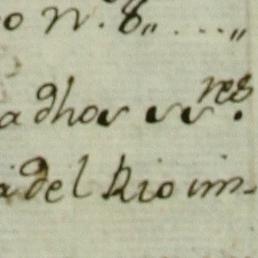 o N. 8,, . . . . ,,
a dhos ss.res
a del Rio im-